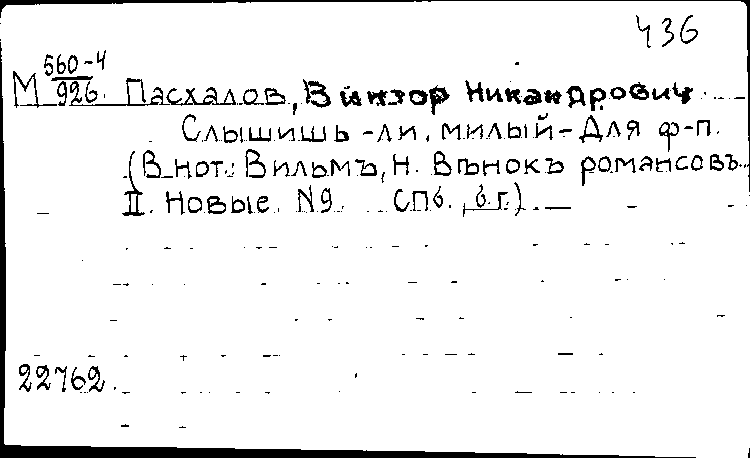 436
М 560-4/926. Пасхалов, Виктор Никандрович
Слышишь-ли, милый - Для ф-п.
(В нот.: Вильмъ, Н. Вѣнокъ романсовъ
II. Новые. N9. СПб., б.г.)
22762.